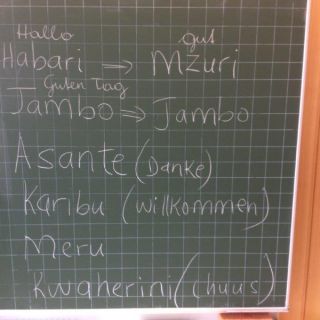 Hallo gut
Habari → Mzuri
Guten Tag
Jambo ⇒ Jambo
Asante (Danke)
Karibu (willkommen)
Meru
Kwaherini (chuus)